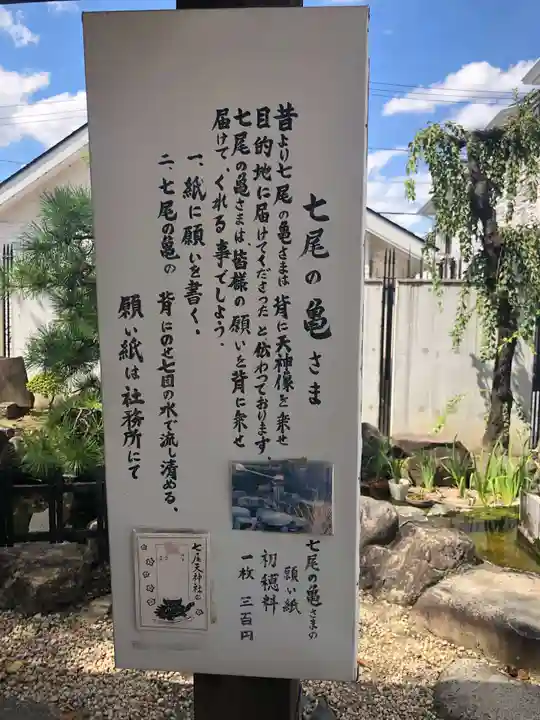 七尾の亀さま
昔より七尾の亀さまは背に天神像を乗せ
目的地に届けてくださったと伝わっております。
七尾の亀さまは、皆様の願いを背に乗せ
届けて、くれる事でしょう。
一、紙に願いを書く。
二、七尾の亀の 背にのせ七回の水で流し清める。
願い紙は社務所にて
七尾の亀さまの
願い紙
初穂料
一枚 三百円
七尾天神社